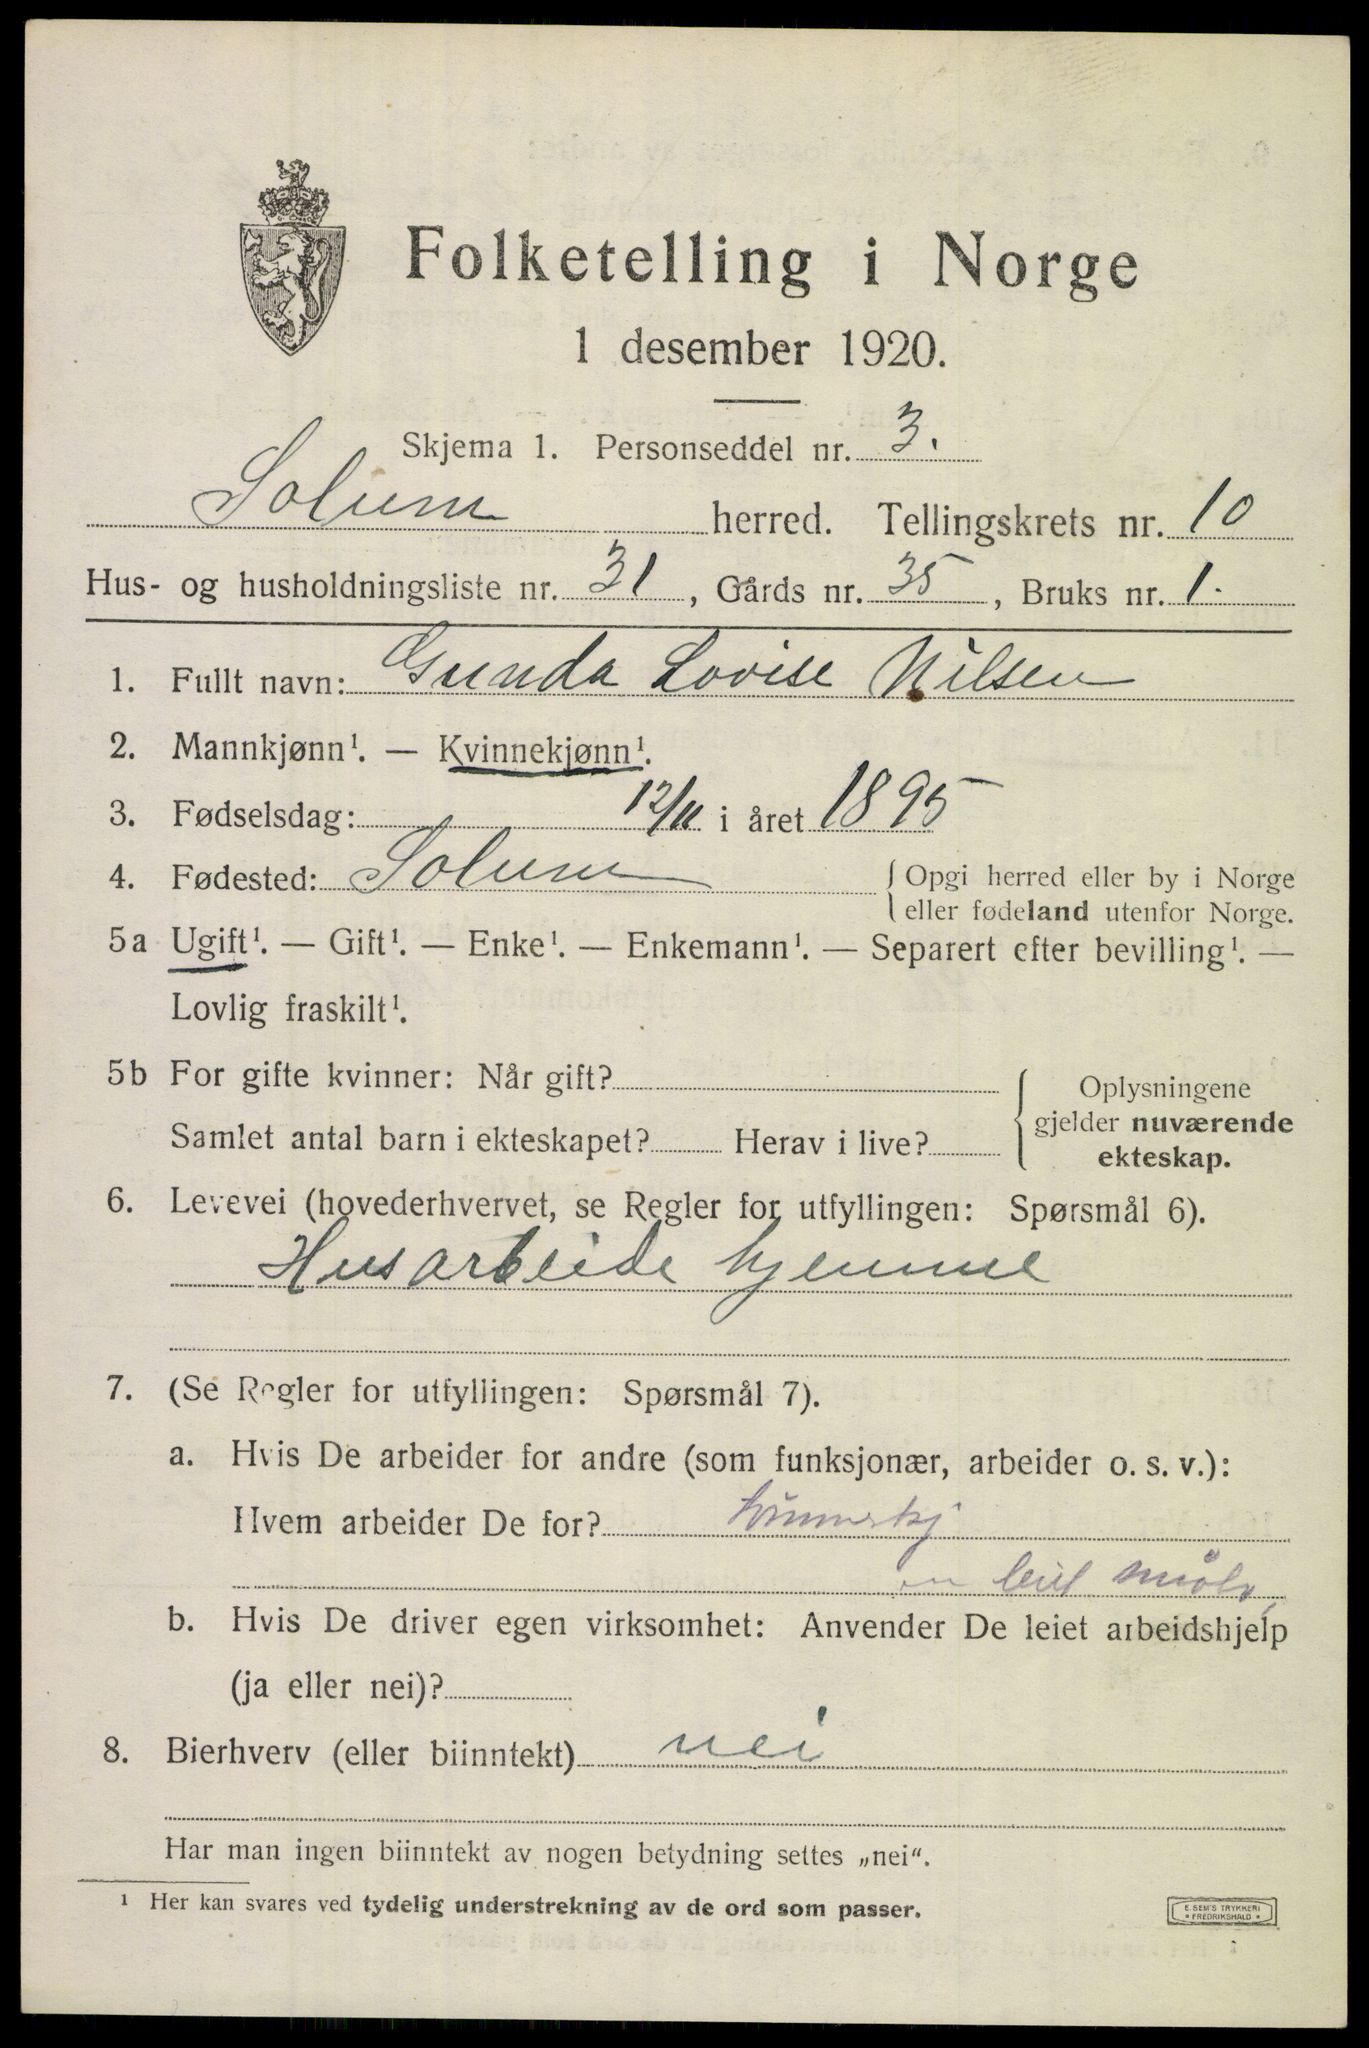 Folketelling i Norge
1 desember 1920.
Skjema 1. Personseddel nr. 3.
Solum herred. Tellingskrets nr. 10
Hus- og husholdningsliste nr. 31, Gårds nr. 35, Bruks nr. 1.
1. Fullt navn: Gunda Lovise Nilsen
2. Mannkjønn¹. — Kvinnekjønn¹.
3. Fødselsdag: 12/11 i året 1895
4. Fødested: Solum { Opgi herred eller by i Norge
eller fødeland utenfor Norge.
5a Ugift¹. — Gift¹. — Enke¹. — Enkemann¹. — Separert efter bevilling¹. —
Lovlig fraskilt¹.
5b For gifte kvinner: Når gift? { Oplysningene
gjelder nuværende
Samlet antal barn i ekteskapet? Herav i live?
ekteskap.
6. Levevei (hovederhvervet, se Regler for utfyllingen: Spørsmål 6).
Husarbeide hjemme
7. (Se Regler for utfyllingen: Spørsmål 7).
a. Hvis De arbeider for andre (som funksjonær, arbeider o. s. v.):
Hvem arbeider De for?
b. Hvis De driver egen virksomhet: Anvender De leiet arbeidshjelp
(ja eller nei)?
8. Bierhverv (eller biinntekt) nei
Har man ingen biinntekt av nogen betydning settes „nei“.
¹ Her kan svares ved tydelig understrekning av de ord som passer.
E. SEM'S TRYKKERI
* FREDRIKSHALD *